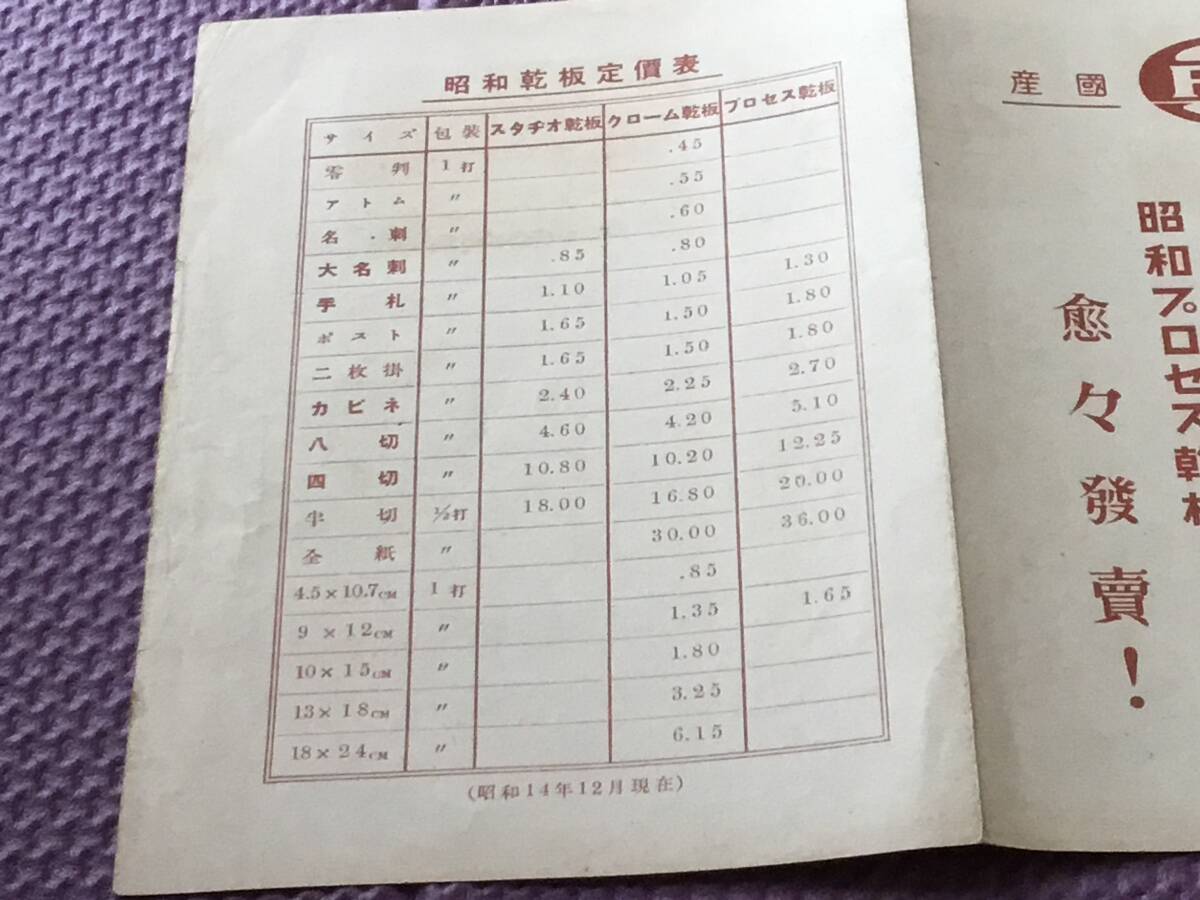 昭和乾板定價表
サイズ 包裝 スタヂオ乾板 クローム乾板 プロセス乾板
零判 1打 .45
アトム 〃 .55
名・刺 〃 .60
大名刺 〃 .85 .80
手札 〃 1.10 1.05 1.30
ポスト 〃 1.65 1.50 1.80
二枚掛 〃 1.65 1.50 1.80
カビネ 〃 2.40 2.25 2.70
八切 〃 4.60 4.20 5.10
四切 〃 10.80 10.20 12.25
半切 ½打 18.00 16.80 20.00
全紙 〃 30.00 36.00
4.5×10.7CM 1打 .85
9×12CM 〃 1.35 1.65
10×15CM 〃 1.80
13×18CM 〃 3.25
18×24CM 〃 6.15
(昭和14年12月現在)
國産
昭和プロセス乾板
愈々發賣!